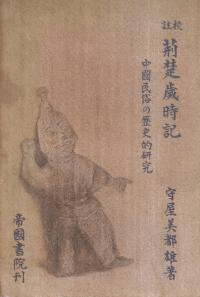 校註 荊楚歲時記
中國民俗の歷史的研究
守屋美都雄著
帝國書院刊